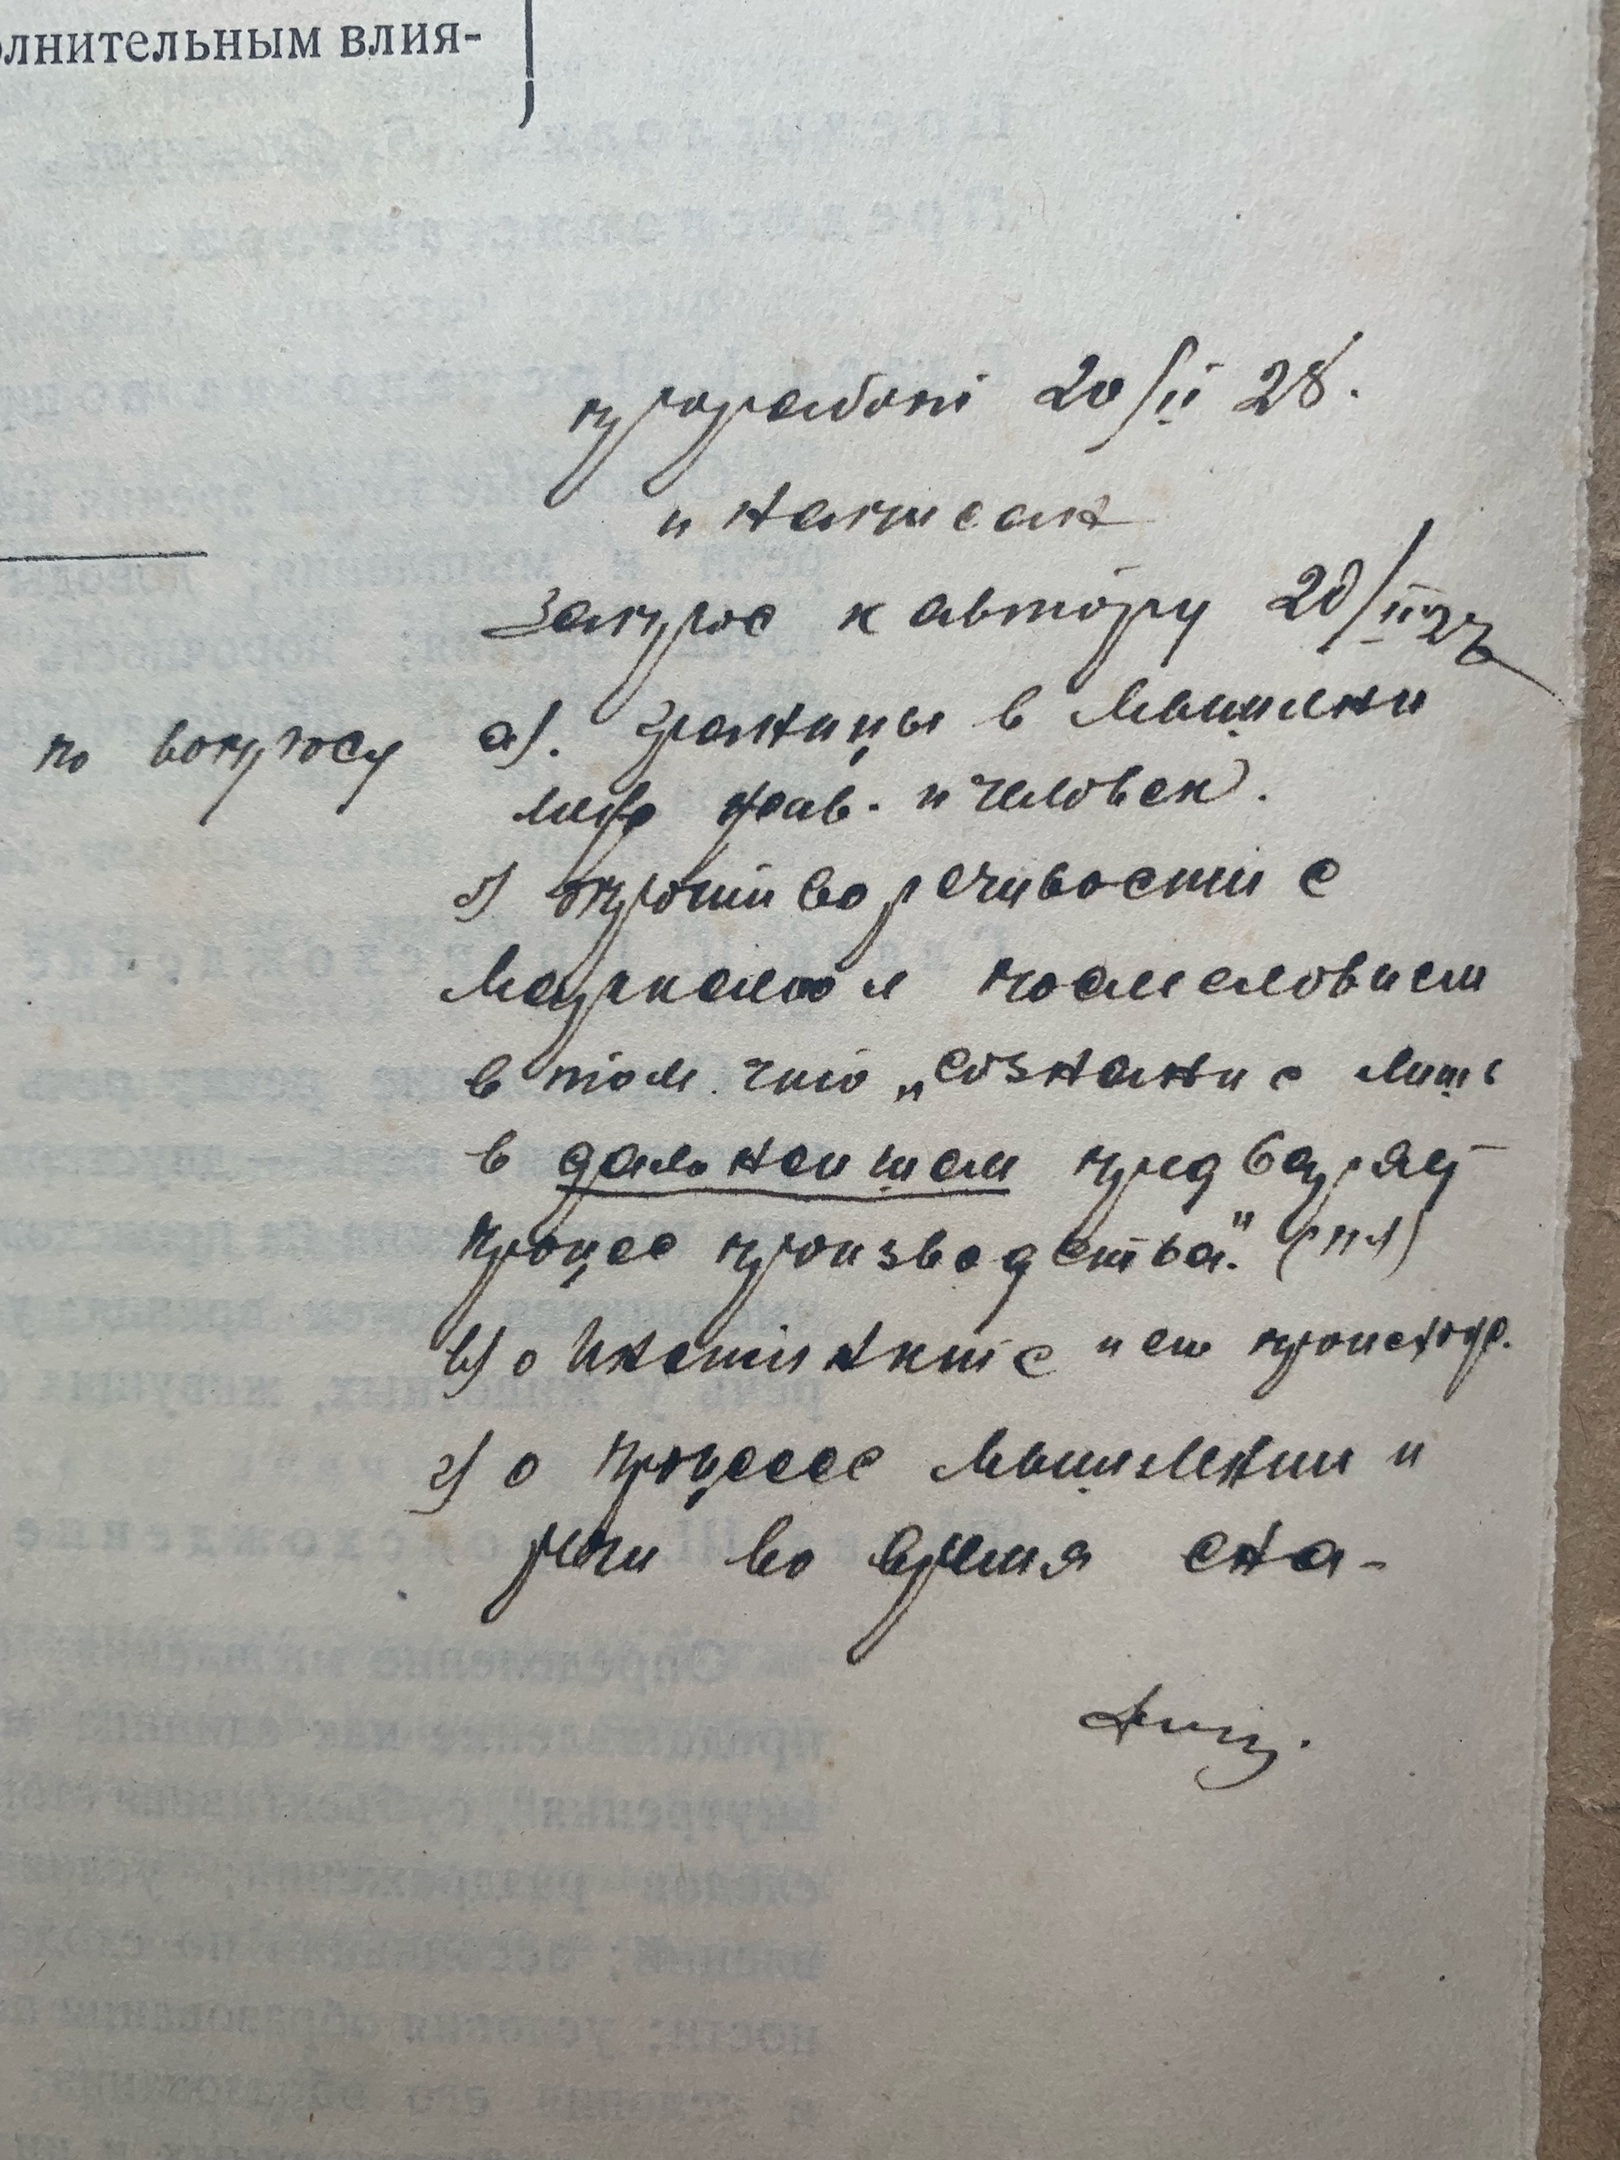 олнительным влия-
проработ 20/II 28.
и написан
Запрос к автору 20/II 28
по вопросу а). границы в мышлени
меж жив. и человек.
б) противоречивости с
Марксом послесловием
в том что „сознание лишь
в дальнейшем предваряет
процес производства." (
в) о Инстинкте и ег происхожд.
г) о процессе мышлении и
речи во время сна-